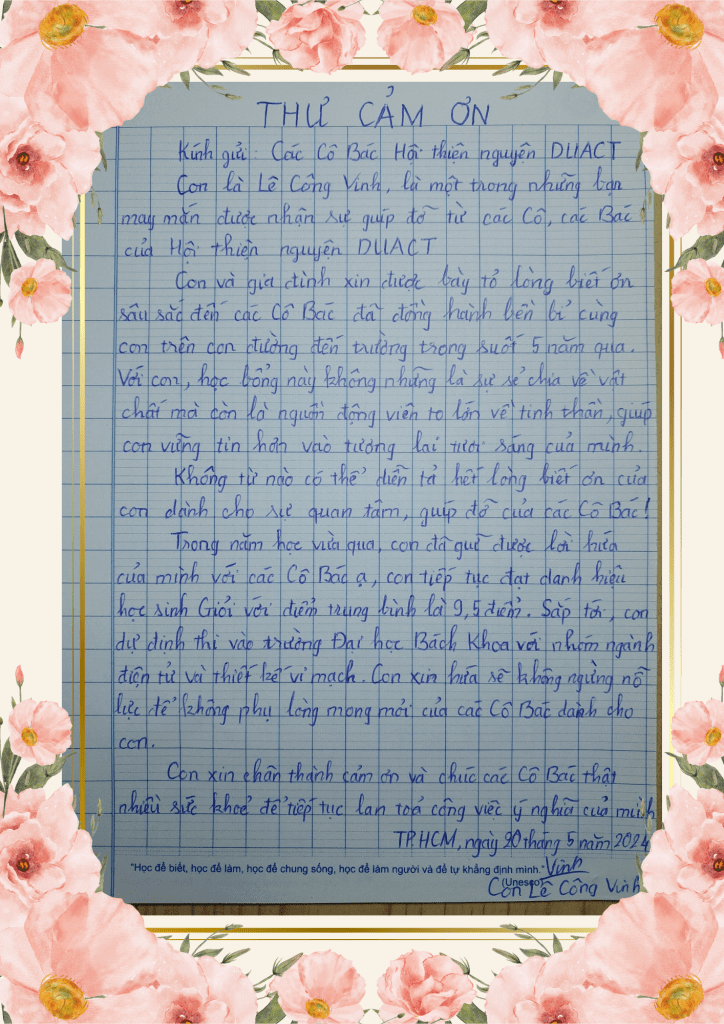 THƯ CẢM ƠN
Kính gửi: Các Cô Bác Hội thiện nguyện DUACT
Con là Lê Công Vinh, là một trong những bạn
may mắn được nhận sự giúp đỡ từ các Cô, các Bác
của Hội thiện nguyện DUACT
Con và gia đình xin được bày tỏ lòng biết ơn
sâu sắc đến các Cô Bác đã đồng hành bền bỉ cùng
con trên con đường đến trường trong suốt 5 năm qua.
Với con, học bổng này không những là sự sẻ chia về vật
chất mà còn là nguồn động viên to lớn về tinh thần, giúp
con vững tin hơn vào tương lai tươi sáng của mình.
Không từ nào có thể diễn tả hết lòng biết ơn của
con dành cho sự quan tâm, giúp đỡ của các Cô Bác!
Trong năm học vừa qua, con đã giữ được lời hứa
của mình với các Cô Bác ạ, con tiếp tục đạt danh hiệu
học sinh Giỏi với điểm trung bình là 9,5 điểm. Sắp tới, con
dự định thi vào trường Đại học Bách Khoa với nhóm ngành
điện tử và thiết kế vi mạch. Con xin hứa sẽ không ngừng nỗ
lực để không phụ lòng mong mỏi của các Cô Bác dành cho
con.
Con xin chân thành cảm ơn và chúc các Cô Bác thật
nhiều sức khoẻ để tiếp tục lan toả công việc ý nghĩa của mình
TP.HCM, ngày 20 tháng 5 năm 2024
"Học để biết, học để làm, học để chung sống, học để làm người và để tự khẳng định mình." Vinh
(Unesco)
Con Lê Công Vinh